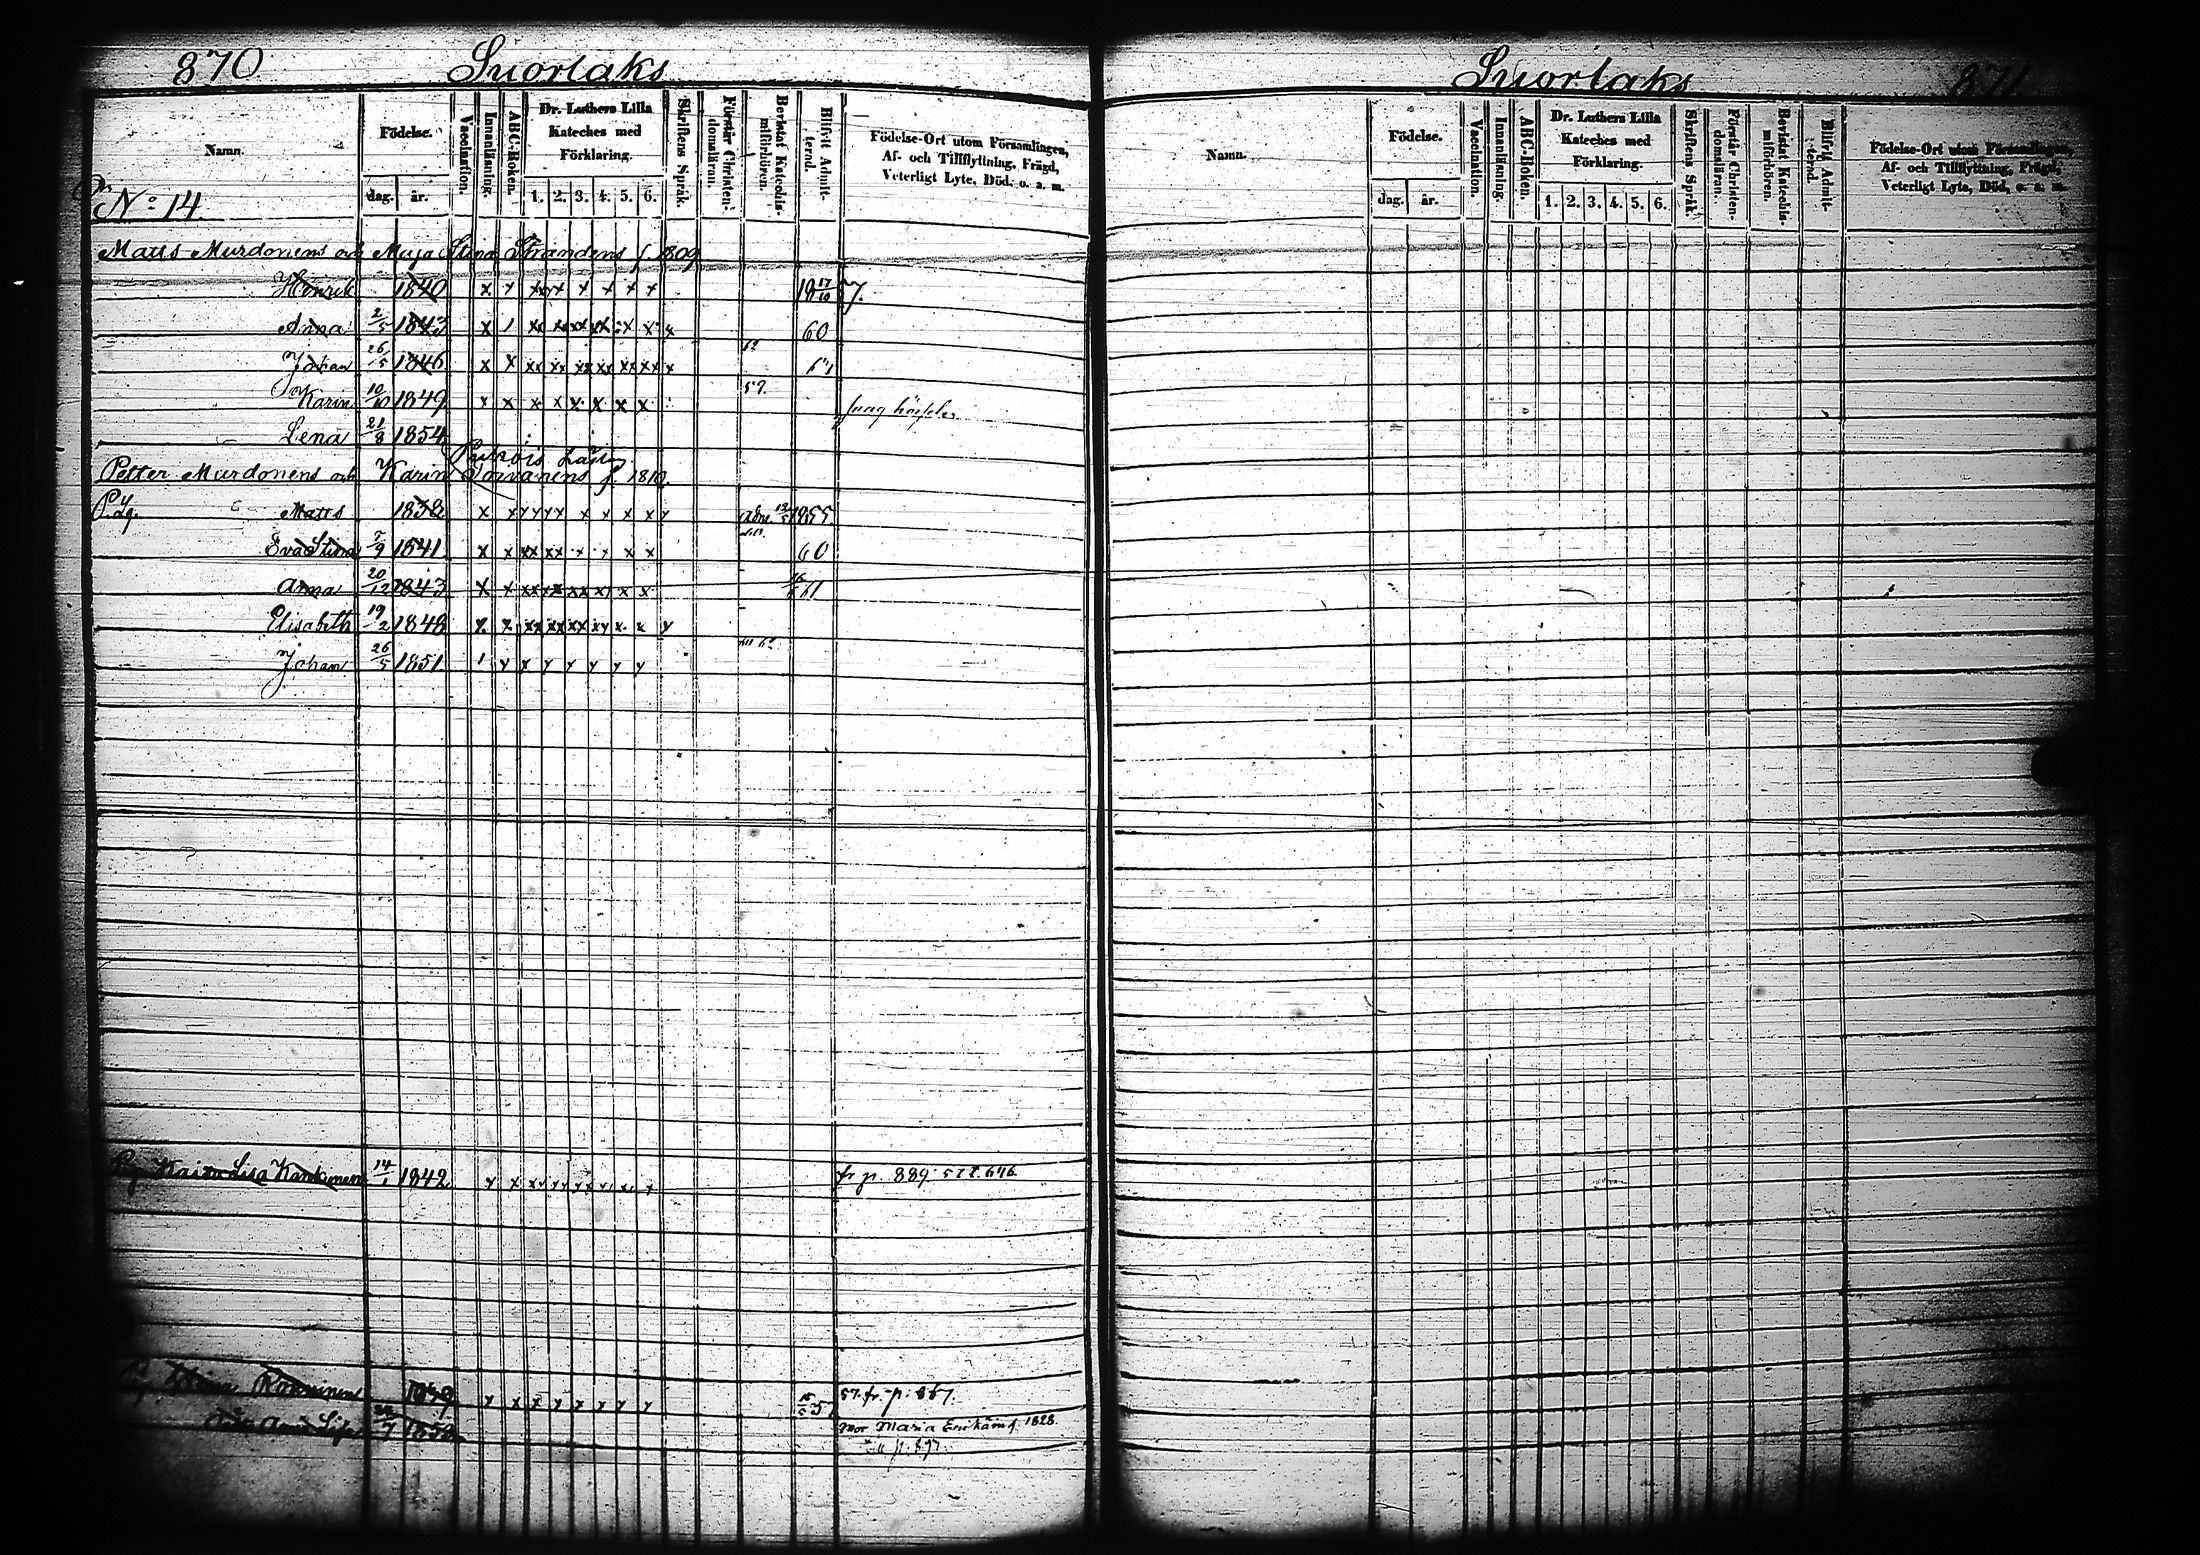 870 Suorlaks
Namn. Födelse. dag. år. Vaccination. Innanläsning. ABC-Boken. Dr. Luthers Lilla Kateches med Förklaring. 1. 2. 3. 4. 5. 6. Skriftens Språk. Förstår Christendomsläran. Bevistat Katechismiförhören. Blifvit Admitternd. Födelse-Ort utom Församlingen, Af- och Tillflyttning, Frägd, Veterligt Lyte, Död, o. a. m.
No 14
Matts Murdonens och Maja Stina Strandens f. 1809
Henrik 1840 x x x x x x 18 17/10 57.
Anna 2/5 1843 x xx xx xx xx x x x 60
Johan 26/5 1846 x x xx xx xx xx xx xx x 61
Karin 10/10 1849 x x x x x x x x 59.
Lena 21/8 1854
Petter Murdonens och Karin f. 1810
Matts 1838 x x x x x x x x x 1855.
Eva Stina 7/9 1841 x x xx xx x x x x 60
Anna 20/12 1843 x x xx xx xx x x x 61
Elisabeth 19/2 1848 x x xx xx xx xx x x x
Johan 26/5 1851 x x x x x x x
Kaisa Lisa 14/1 1842 x x x x x x x x fr p. 889 646
x x x x x x x x 57. fr. p. 867.
Anna Lisa mor Maria f. 1828
Suorlaks 871
Namn. Födelse. dag. år. Vaccination. Innanläsning. ABC-Boken. Dr. Luthers Lilla Kateches med Förklaring. 1. 2. 3. 4. 5. 6. Skriftens Språk. Förstår Christendomsläran. Bevistat Katechismiförhören. Blifvit Admitternd. Födelse-Ort utom Församlingen, Af- och Tillflyttning, Frägd, Veterligt Lyte, Död, o. a. m.